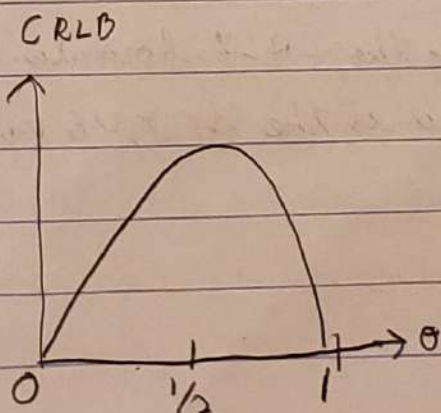 CRLB
θ
0
1/2
1